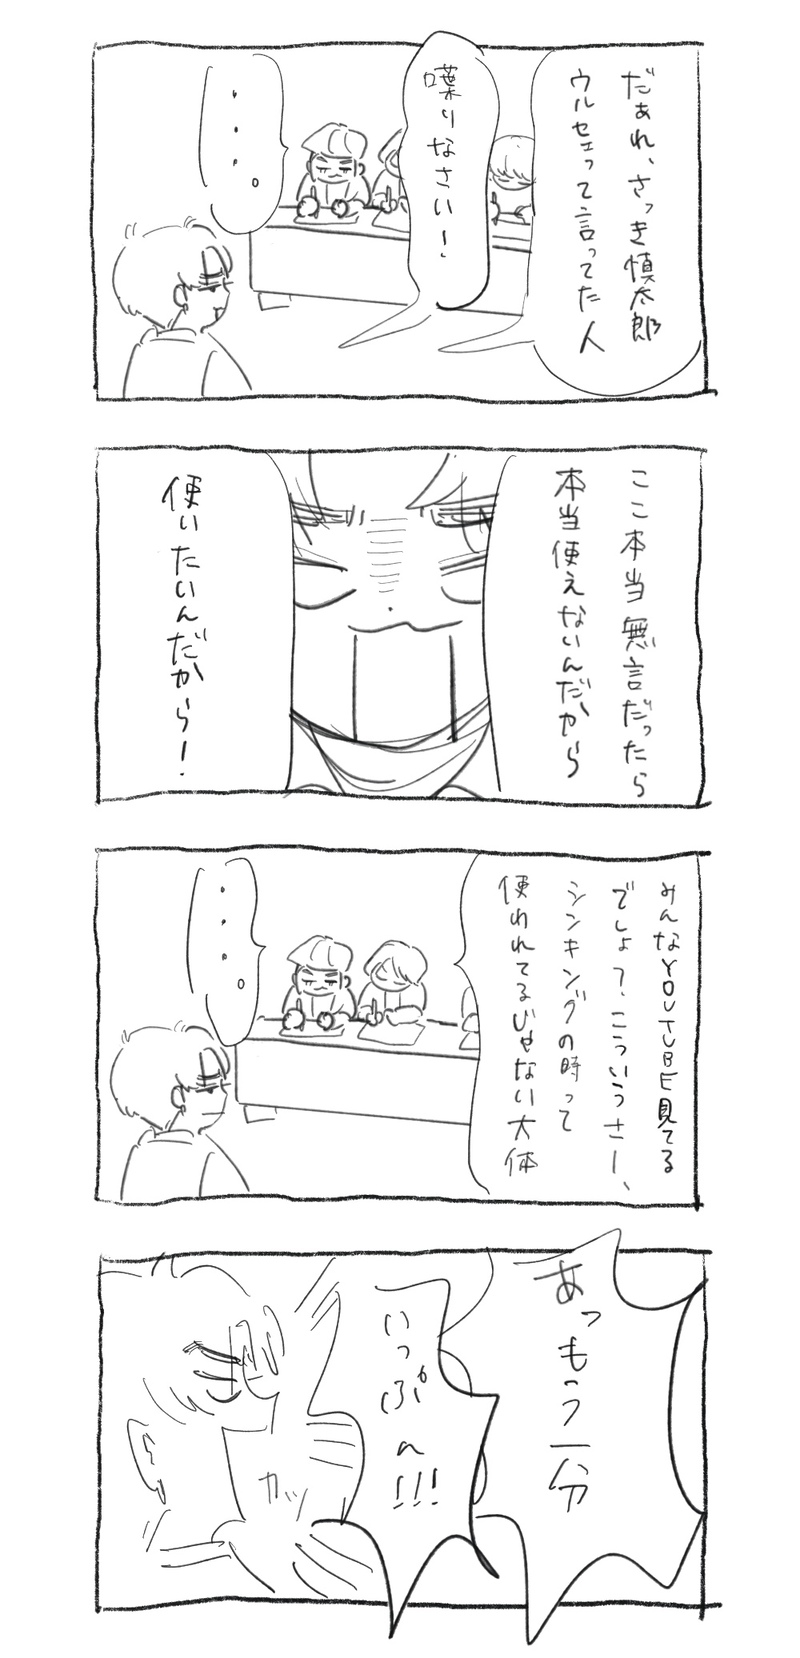 だぁれ、さっき慎太郎
ウルセェって言ってた人
喋りなさい!
・・・。
ここ本当無言だったら
本当使えないんだから
使いたいんだから!
みんなYOUTUBE見てる
でしょ?、こういうさー、
シンキングの時って
使われてるじゃない大体
・・・。
あっもう一分
いっぷん!!!
カッ